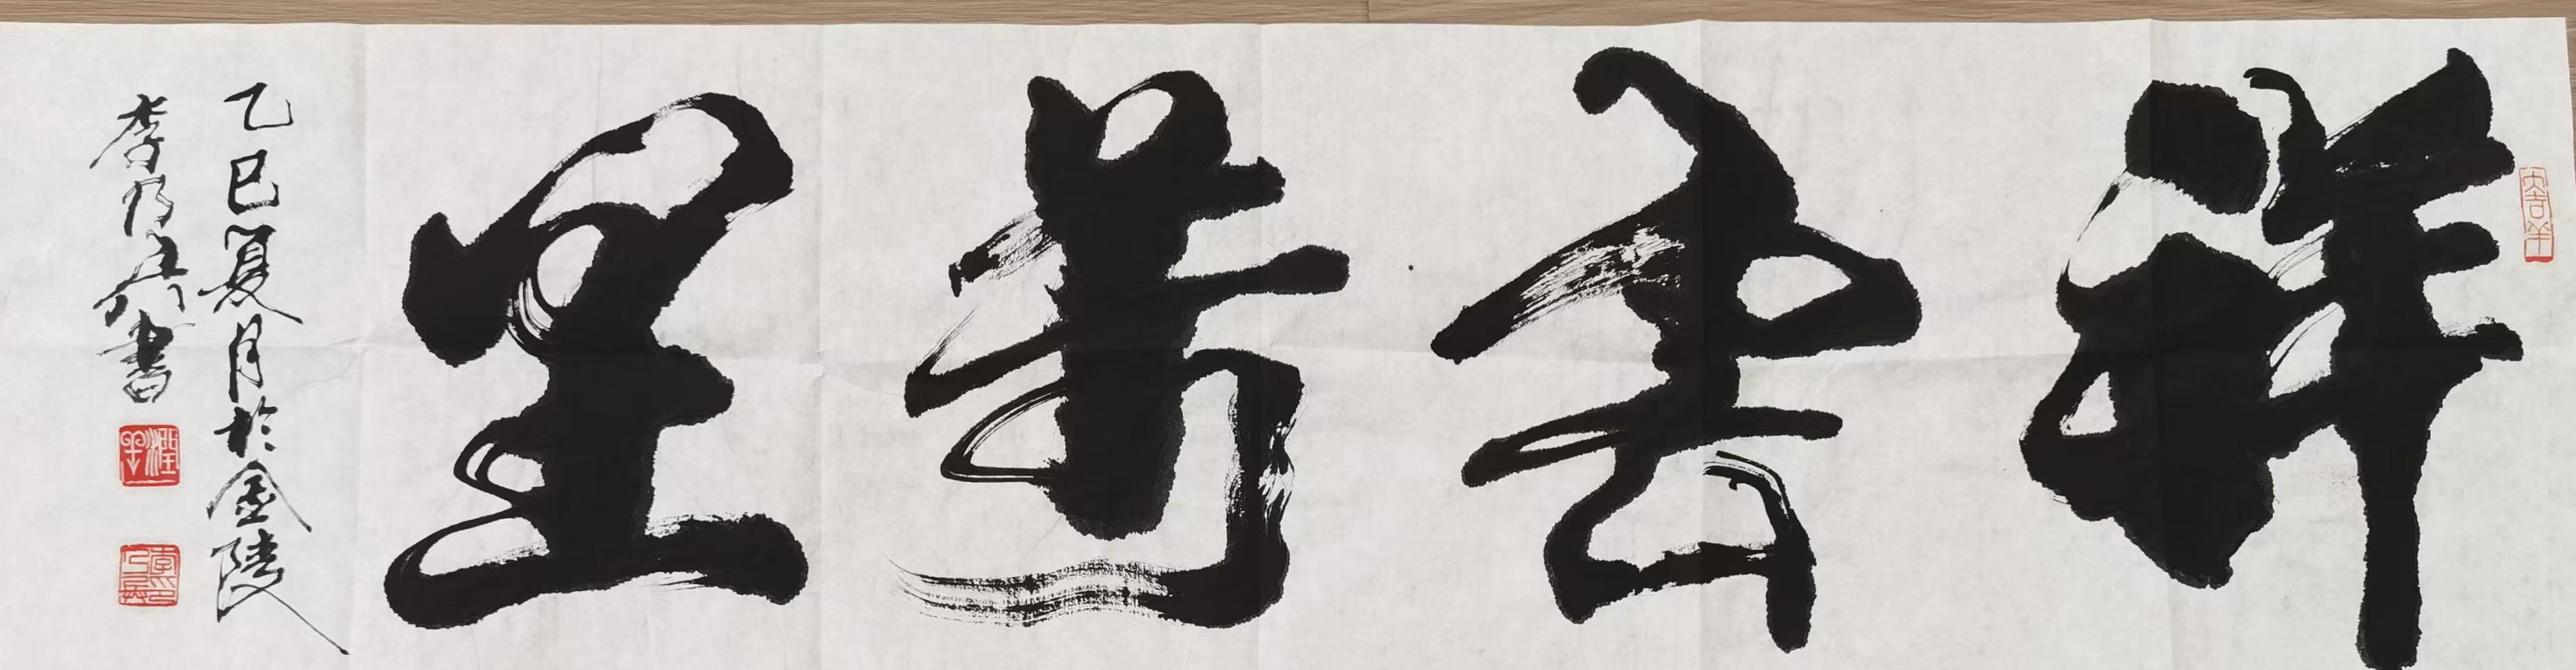 祥雲萬里
乙巳夏月於金陵
李乃
書